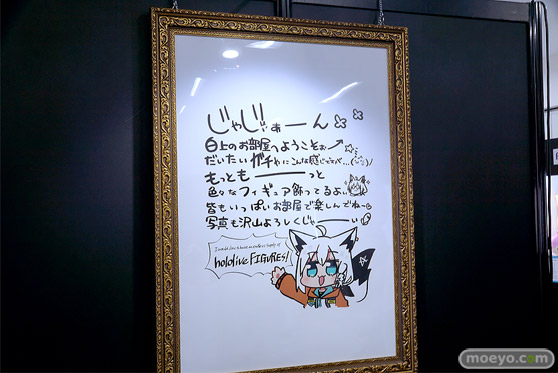 じゃじゃぁーん
白上のお部屋へようこそぉ↗
だいたいガチャにこんな感じですが…
もっともーーっと
色々なフィギュア飾ってるよぉ
皆もいっぱいお部屋で楽しんでねー
写真も沢山よろしくじゃーい
I would like to have an endless supply of
hololive FIGURES!
moeyo.com